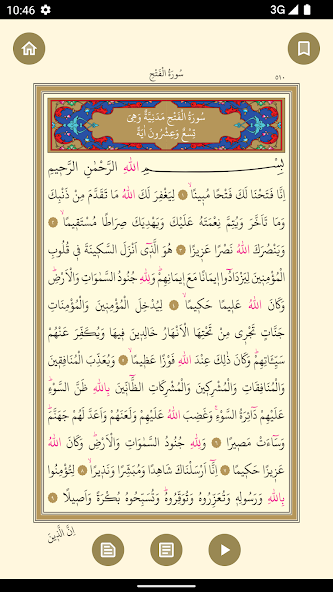 10:46
3G
سُورَةُ الْفَتْحِ
٥١٠
سُورَةُ الْفَتْحِ مَدَنِيَّةٌ وَهِيَ
تِسْعٌ وَعِشْرُونَ اٰيَةً
بِسْمِ اللّٰهِ الرَّحْمٰنِ الرَّحٖيمِ
اِنَّا فَتَحْنَا لَكَ فَتْحًا مُبٖينًاۙ ١ لِيَغْفِرَ لَكَ اللّٰهُ مَا تَقَدَّمَ مِنْ ذَنْبِكَ
وَمَا تَاَخَّرَ وَيُتِمَّ نِعْمَتَهُ عَلَيْكَ وَيَهْدِيَكَ صِرَاطًا مُسْتَقٖيمًاۙ ٢
وَيَنْصُرَكَ اللّٰهُ نَصْرًا عَزٖيزًا ٣ هُوَ الَّذٖٓى اَنْزَلَ السَّكٖينَةَ فٖى قُلُوبِ
الْمُؤْمِنٖينَ لِيَزْدَادُٓوا اٖيمَانًا مَعَ اٖيمَانِهِمْۜ وَلِلّٰهِ جُنُودُ السَّمٰوَاتِ وَالْاَرْضِۜ
وَكَانَ اللّٰهُ عَلٖيمًا حَكٖيمًاۙ ٤ لِيُدْخِلَ الْمُؤْمِنٖينَ وَالْمُؤْمِنَاتِ
جَنَّاتٍ تَجْرٖى مِنْ تَحْتِهَا الْاَنْهَارُ خَالِدٖينَ فٖيهَا وَيُكَفِّرَ عَنْهُمْ
سَيِّـَٔاتِهِمْۜ وَكَانَ ذٰلِكَ عِنْدَ اللّٰهِ فَوْزًا عَظٖيمًاۙ ٥ وَيُعَذِّبَ الْمُنَافِقٖينَ
وَالْمُنَافِقَاتِ وَالْمُشْرِكٖينَ وَالْمُشْرِكَاتِ الظَّٓانّٖينَ بِاللّٰهِ ظَنَّ السَّوْءِۜ
عَلَيْهِمْ دَٓائِرَةُ السَّوْءِۚ وَغَضِبَ اللّٰهُ عَلَيْهِمْ وَلَعَنَهُمْ وَاَعَدَّ لَهُمْ جَهَنَّمَۜ
وَسَٓاءَتْ مَصٖيرًا ٦ وَلِلّٰهِ جُنُودُ السَّمٰوَاتِ وَالْاَرْضِۜ وَكَانَ اللّٰهُ
عَزٖيزًا حَكٖيمًا ٧ اِنَّٓا اَرْسَلْنَاكَ شَاهِدًا وَمُبَشِّرًا وَنَذٖيرًاۙ ٨ لِتُؤْمِنُوا
بِاللّٰهِ وَرَسُولِهٖ وَتُعَزِّرُوهُ وَتُوَقِّرُوهُۜ وَتُسَبِّحُوهُ بُكْرَةً وَاَصٖيلًا ٩
اِنَّ الَّذٖينَ